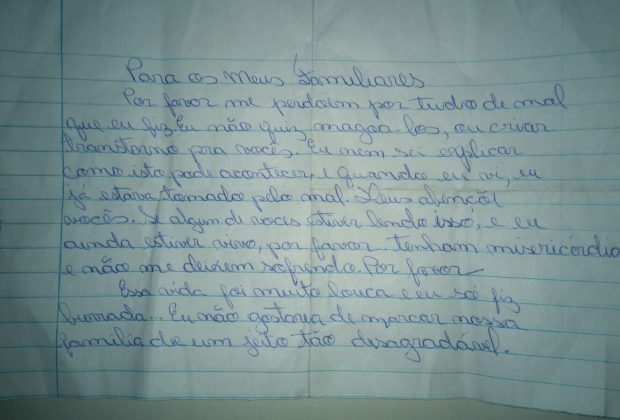 Para os meus familiares
Por favor me perdoem por tudo de mal
que eu fiz. Eu não quiz magoa-los, ou criar
transtorno pra vocês. Eu nem sei explicar
como isto pode acontecer, e quando eu vi, eu
já estava tomado pelo mal. Deus abençõe
vocês. Se algum de voces estiver lendo isso, e eu
ainda estiver vivo, por favor tenham misericórdia
e não me deixem sofrendo. Por favor
Essa vida foi muito louca e eu só fiz
burrada... Eu não gostaria de marcar nossa
familia de um jeito tão desagradável.